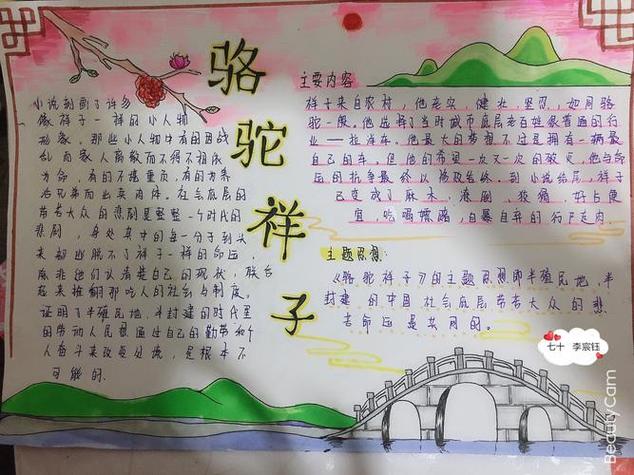 骆驼祥子
小说刻画了许多
像祥子一样的小人物
形象，那些小人物中有的因战
乱而家人离散而不得不相依
为命，有的不堪重负，有的为养
活兄弟而出卖肉体。社会底层的
劳苦大众的悲剧是整整一个时代的
悲剧，身处其中的每一分子到头
来都逃脱不了祥子一样的命运，
除非他们认清楚自己的现状，联合
起来推翻那吃人的社会与制度。
证明了半殖民地、半封建的时代里
的劳动人民想通过自己的勤劳和个
人奋斗来改变处境，是根本不
可能的.
主要内容
祥子来自农村，他老实，健壮，坚忍，如同骆
驼一般。他选择了当时城市底层老百姓很普通的行
业——拉洋车。他最大的梦想不过是拥有一辆最
自己的车。但他的希望一次又一次的破灭，他与命
运的抗争最终以惨败告终。到小说结尾，祥子
已变成了麻木，潦倒，狡猾，好占便
宜，吃喝嫖赌，自暴自弃的行尸走肉.
主题思想：
《骆驼祥子》的主题思想即半殖民地，半
封建的中国社会底层劳苦大众的悲
苦命运是共同的。
七十 李宸钰
BeautyCam